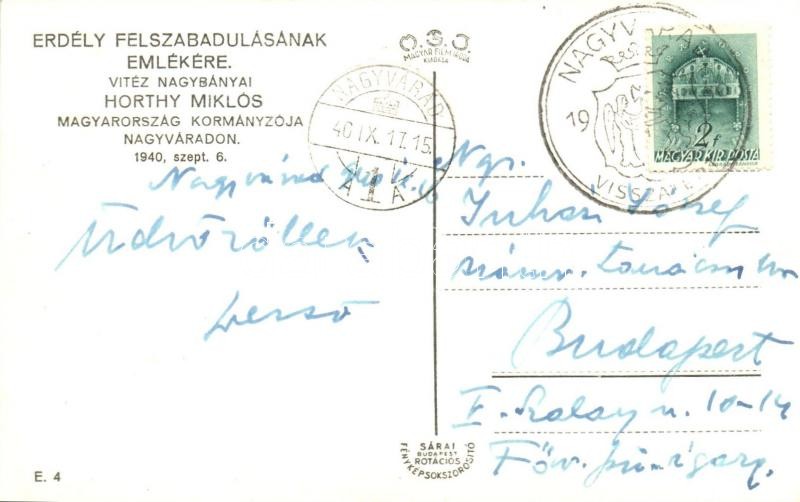 ERDÉLY FELSZABADULÁSÁNAK
EMLÉKÉRE.
VITÉZ NAGYBÁNYAI
HORTHY MIKLÓS
MAGYARORSZÁG KORMÁNYZÓJA
NAGYVÁRADON.
1940, szept. 6.
MAGYAR FILM IRODA
KIADÁSA
NAGYVÁRAD
40 IX. 17. 15
A 1 A
NAGYVÁRAD
19
VISSZATÉRT
2f
MAGYAR KIR. POSTA
Nagyvárad
Üdvözöllek
Dezső
Ngs.
Juhász József
Budapest
V. Szalay u. 10-14
Főv.
E. 4
SÁRAI
BUDAPEST
ROTÁCIÓS
FÉNYKÉPSOKSZOROSÍTÓ